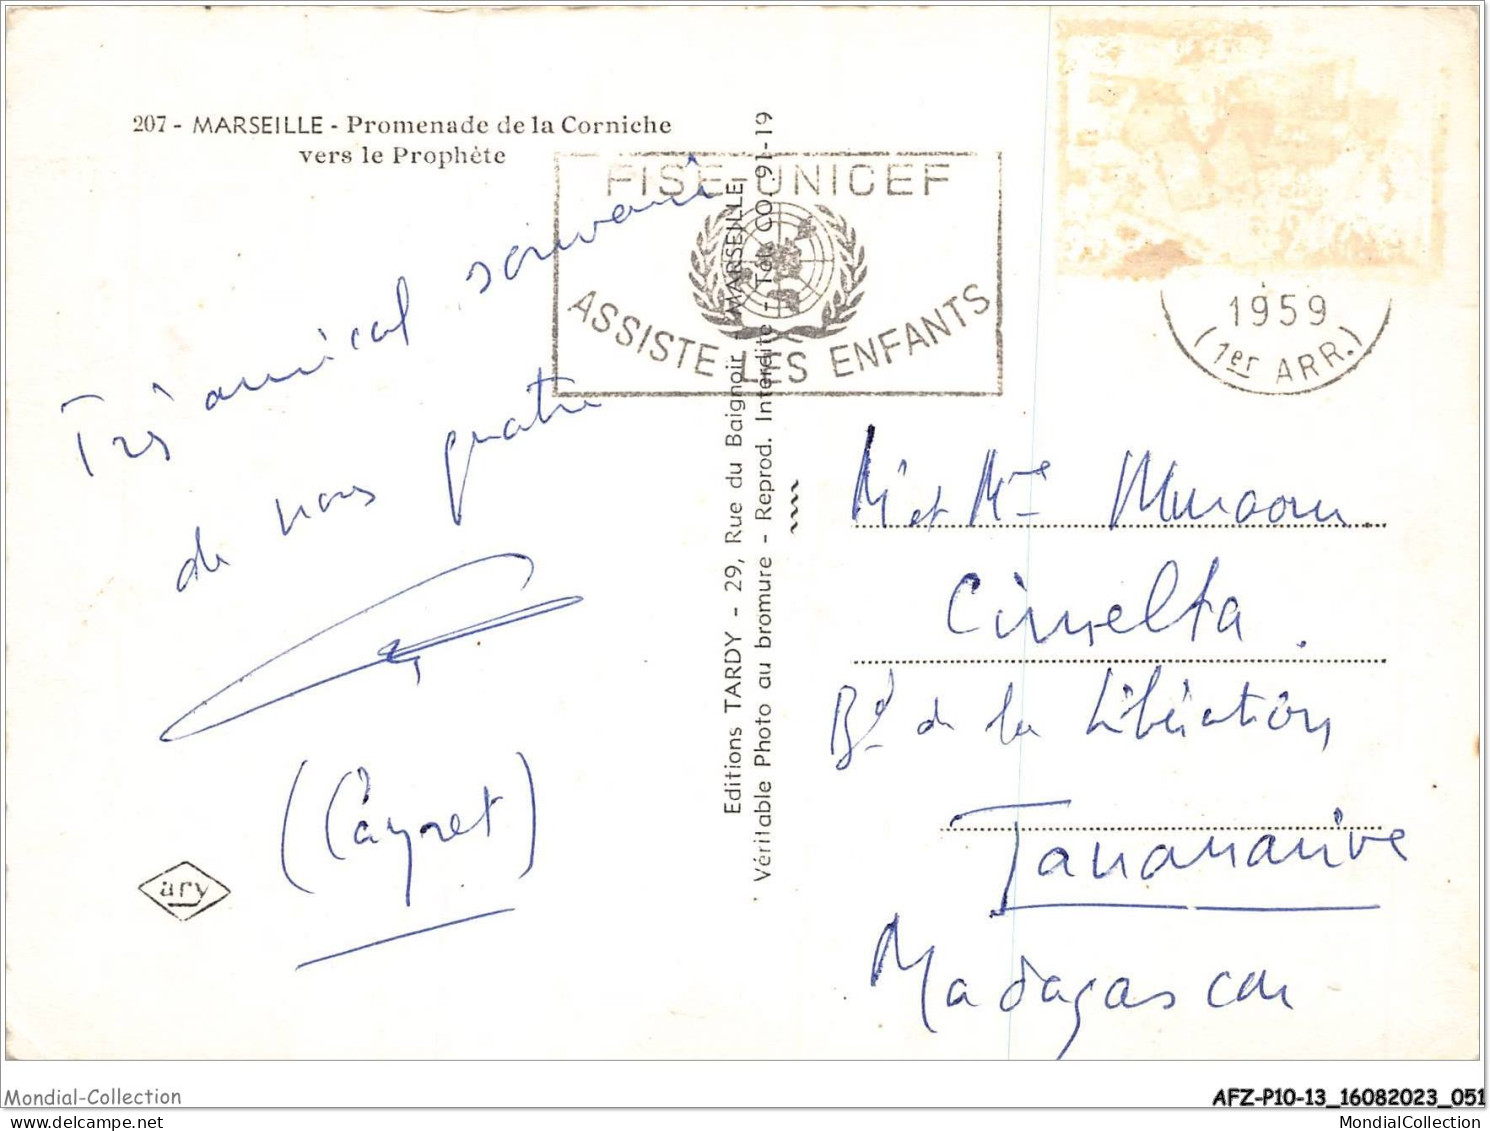 207 - MARSEILLE - Promenade de la Corniche
vers le Prophète
FISE-UNICEF
ASSISTE LES ENFANTS
1959
(1er ARR.)
Très amical souvenir
de nous quatre
(Cayret)
ary
Editions TARDY - 29, Rue du Baignoir - MARSEILLE
Véritable Photo au bromure - Reprod. Interdite - Tél. CO. 91-19
Mr et Mme
Cimelta
Bd de la Libération
Tananarive
Madagascar
Mondial-Collection
AFZ-P10-13_16082023_051
MondialCollection